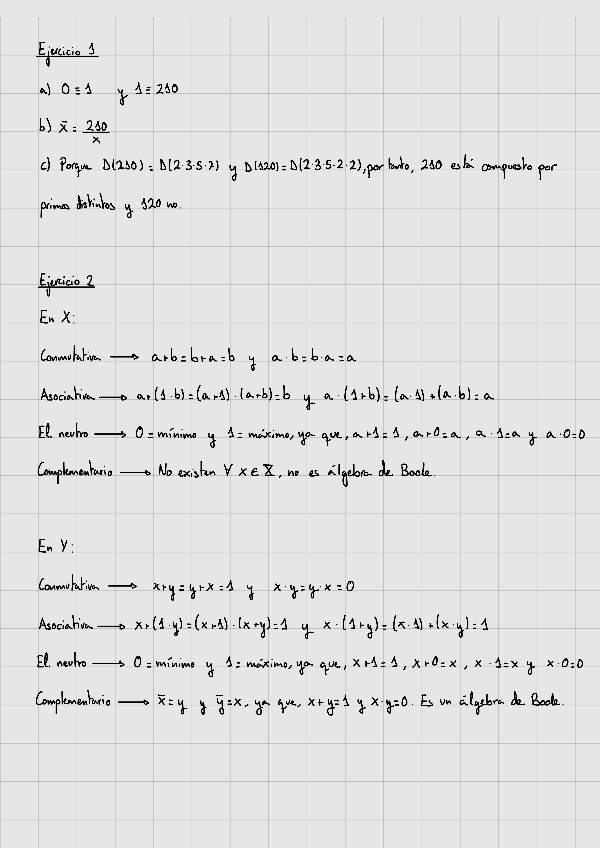 Ejercicio 1
a) 0 = 1 y 1 = 210
b) x̄ = 210/x
c) Porque D(210) = D(2·3·5·7) y D(120) = D(2·3·5·2·2), por tanto, 210 está compuesto por
primos distintos y 120 no.
Ejercicio 2
En X:
Conmutativa → a+b=b+a=b y a·b=b·a=a
Asociativa → a+(1·b)=(a+1)·(a+b)=b y a·(1+b)=(a·1)+(a·b)=a
El. neutro → 0=mínimo y 1=máximo, ya que, a+1=1, a+0=a, a·1=a y a·0=0
Complementario → No existen ∀ x ∈ X, no es álgebra de Boole.
En Y:
Conmutativa → x+y=y+x=1 y x·y=y·x=0
Asociativa → x+(1·y)=(x+1)·(x+y)=1 y x·(1+y)=(x·1)+(x·y)=1
El. neutro → 0=mínimo y 1=máximo, ya que, x+1=1, x+0=x, x·1=x y x·0=0
Complementario → x̄=y y ȳ=x, ya que, x+y=1 y x·y=0. Es un álgebra de Boole.